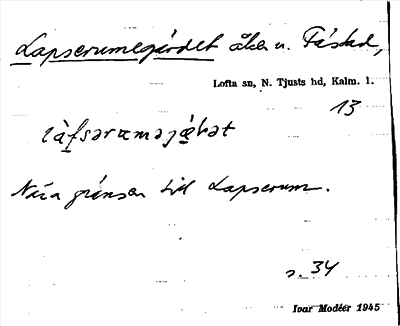 Lapserumegärdet åker u. Fåstad,
Lofta sn, N. Tjusts hd, Kalm. l.
13
Nära gränsen till Lapserum.
s. 34
Ivar Modéer 1945